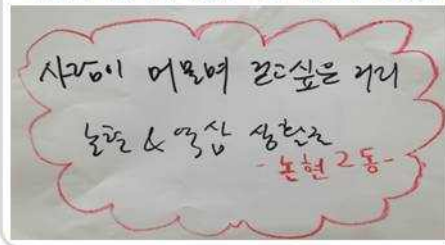 사람이 머물며 걷고싶은 거리
논현 & 역삼
- 논현2동-